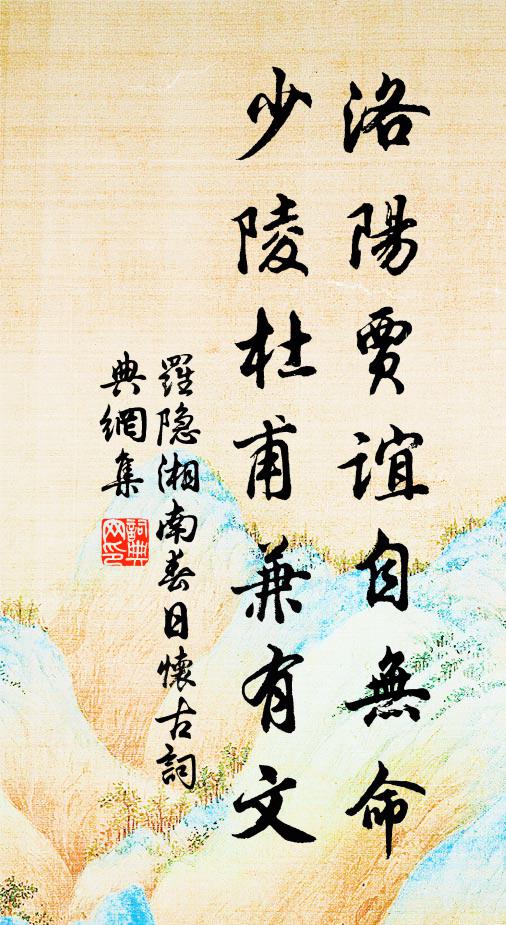 洛陽賈誼自無命
少陵杜甫兼有文
羅隐湘南春日懷古詞
典網集
詞典
网印